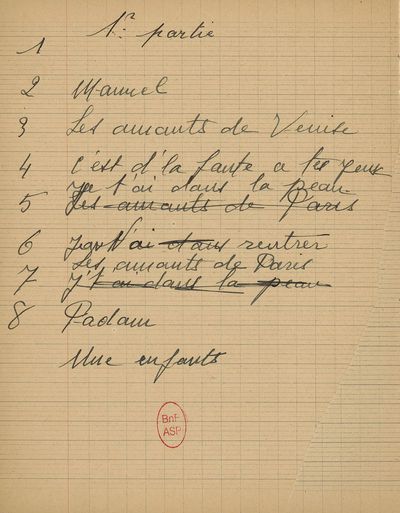 1re partie
1
2 Manuel
3 Les amants de Venise
4 c'est d'la faute a tes yeux
Je t'ai dans la peau
5 Les amants de Paris
6 rentrer
Les amants de Paris
7 J't'ai dans la peau
8 Padam
Une enfants
BnF
ASP